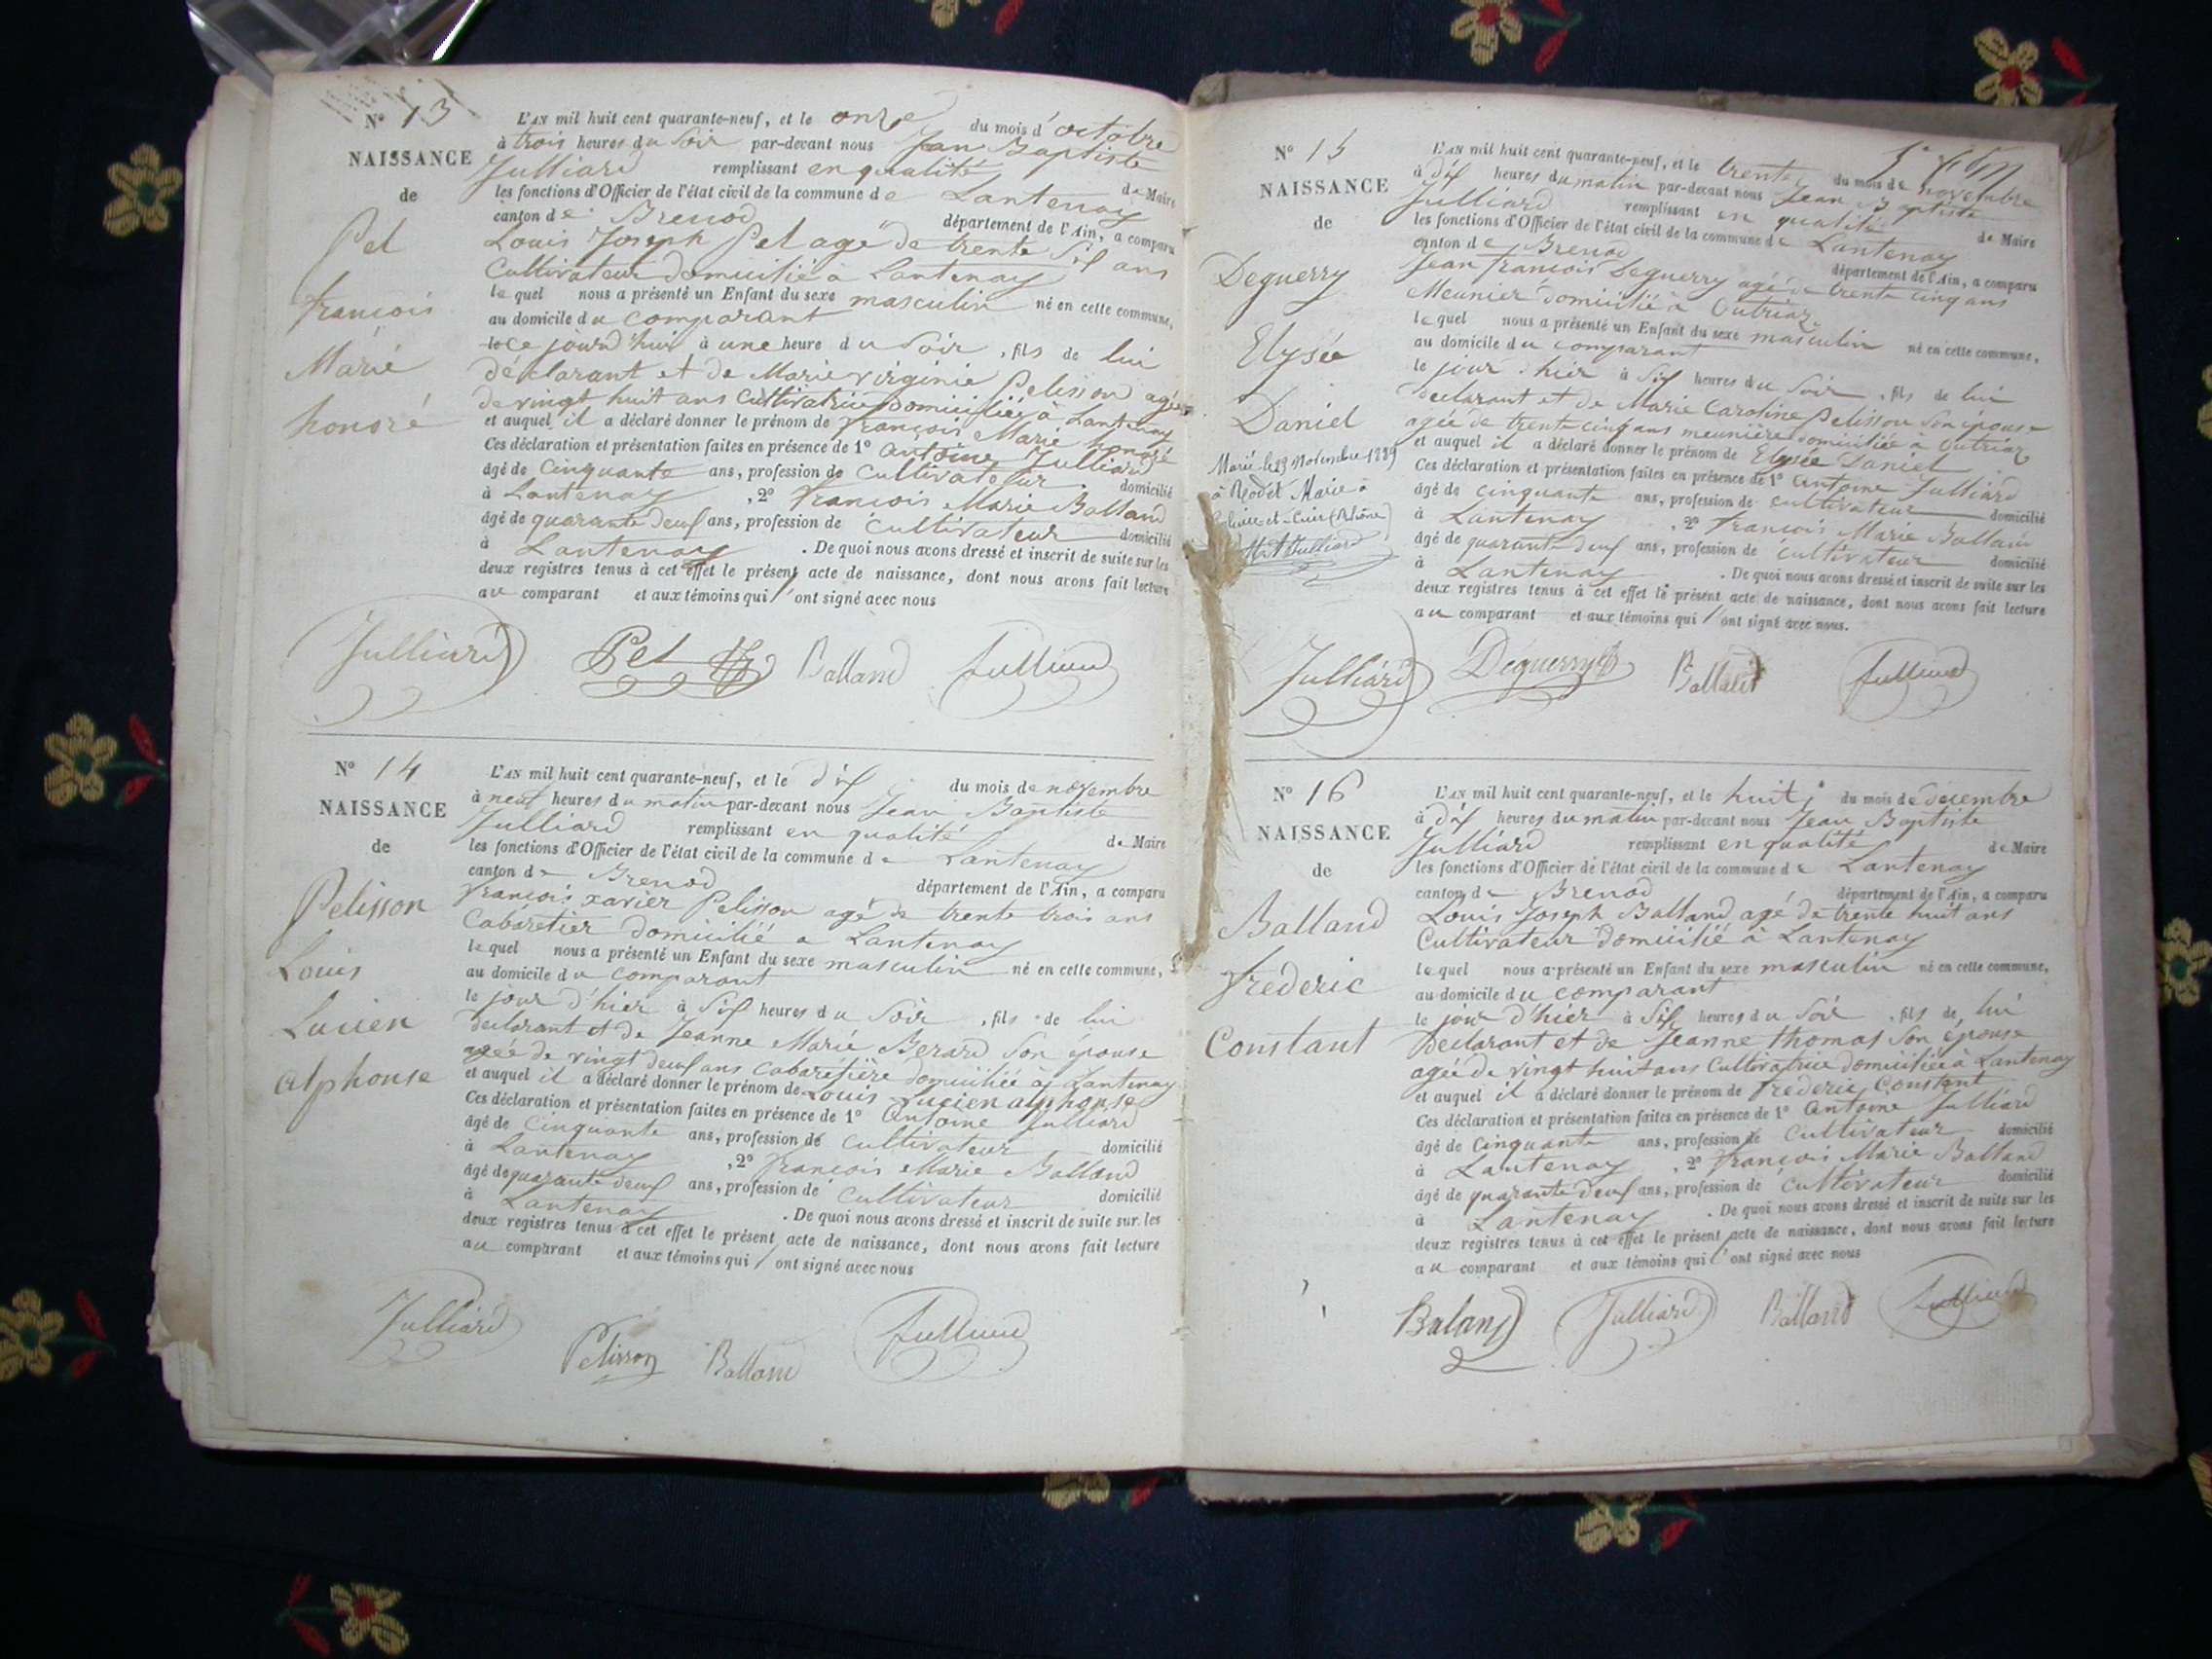 Nº 13
NAISSANCE
de
Pel
françois
Marie
honoré
L'AN mil huit cent quarante-neuf, et le onze du mois d'octobre
à trois heures du Soir par-devant nous Jean Baptiste
Julliard remplissant en qualité de Maire
les fonctions d'Officier de l'état civil de la commune de Lantenay
canton de Brenod département de l'Ain, a comparu
Louis Joseph Pel agé de trente Six ans
Cultivateur domicilié à Lantenay
lequel nous a présenté un Enfant du sexe masculin né en cette commune,
au domicile du comparant
ce jourd'hui à une heure du Soir, fils de lui
déclarant et de Marie virginie Pelisson agée
de vingt huit ans Cultivatrice domiciliée à Lantenay
et auquel il a déclaré donner le prénom de françois Marie honoré
Ces déclaration et présentation faites en présence de 1º antoine Julliard
âgé de Cinquante ans, profession de Cultivateur domicilié
à Lantenay, 2º françois Marie Balland
âgé de quarante deux ans, profession de Cultivateur domicilié
à Lantenay. De quoi nous avons dressé et inscrit de suite sur les
deux registres tenus à cet effet le présent acte de naissance, dont nous avons fait lecture
au comparant et aux témoins qui l'ont signé avec nous
Julliard Pel Balland Julliard
Nº 14
NAISSANCE
de
Pelisson
Louis
Lucien
alphonse
L'AN mil huit cent quarante-neuf, et le dix du mois de novembre
à neuf heures du matin par-devant nous Jean Baptiste
Julliard remplissant en qualité de Maire
les fonctions d'Officier de l'état civil de la commune de Lantenay
canton de Brenod département de l'Ain, a comparu
françois xavier Pelisson agé de trente trois ans
Cabaretier domicilié a Lantenay
lequel nous a présenté un Enfant du sexe masculin né en cette commune,
au domicile du comparant
le jour d'hier à Six heures du Soir, fils de lui
declarant et de Jeanne Marie Berard Son épouse
agée de vingt deux ans Cabaretière domiciliée à Lantenay
et auquel il a déclaré donner le prénom de Louis Lucien alphonse
Ces déclaration et présentation faites en présence de 1º antoine Julliard
âgé de Cinquante ans, profession de Cultivateur domicilié
à Lantenay, 2º françois Marie Balland
âgé de quarante deux ans, profession de Cultivateur domicilié
à Lantenay. De quoi nous avons dressé et inscrit de suite sur les
deux registres tenus à cet effet le présent acte de naissance, dont nous avons fait lecture
au comparant et aux témoins qui l'ont signé avec nous
Julliard Pelisson Balland Julliard
Nº 15
NAISSANCE
de
Deguerry
Elysée
Daniel
Marié le 23 Novembre 1889
à Rodet Marie à
(Rhône)
Julliard
L'AN mil huit cent quarante-neuf, et le trente du mois de novembre
à dix heures du matin par-devant nous Jean Baptiste
Julliard remplissant en qualité de Maire
les fonctions d'Officier de l'état civil de la commune de Lantenay
canton de Brenod département de l'Ain, a comparu
Jean françois Deguerry agé de trente cinq ans
Meunier domicilié à Outriaz
lequel nous a présenté un Enfant du sexe masculin né en cette commune,
au domicile du comparant
le jour d'hier à Six heures du Soir, fils de lui
declarant et de Marie Caroline Pelisson Son épouse
agée de trente cinq ans meunière domiciliée à Outriaz
et auquel il a déclaré donner le prénom de Elysée Daniel
Ces déclaration et présentation faites en présence de 1º antoine Julliard
âgé de cinquante ans, profession de cultivateur domicilié
à Lantenay, 2º françois Marie Balland
âgé de quarante deux ans, profession de cultivateur domicilié
à Lantenay. De quoi nous avons dressé et inscrit de suite sur les
deux registres tenus à cet effet le présent acte de naissance, dont nous avons fait lecture
au comparant et aux témoins qui l'ont signé avec nous.
Julliard Deguerry Balland Julliard
Nº 16
NAISSANCE
de
Balland
frederic
Constant
L'AN mil huit cent quarante-neuf, et le huit du mois de decembre
à dix heures du matin par-devant nous Jean Baptiste
Julliard remplissant en qualité de Maire
les fonctions d'Officier de l'état civil de la commune de Lantenay
canton de Brenod département de l'Ain, a comparu
Louis Joseph Balland agé de trente huit ans
Cultivateur domicilié à Lantenay
lequel nous a présenté un Enfant du sexe masculin né en cette commune,
au domicile du comparant
le jour d'hier à Six heures du Soir, fils de lui
declarant et de Jeanne thomas Son épouse
agée de vingt huit ans Cultivatrice domiciliée à Lantenay
et auquel il a déclaré donner le prénom de frederic Constant
Ces déclaration et présentation faites en présence de 1º antoine Julliard
âgé de Cinquante ans, profession de Cultivateur domicilié
à Lantenay, 2º françois Marie Balland
âgé de quarante deux ans, profession de Cultivateur domicilié
à Lantenay. De quoi nous avons dressé et inscrit de suite sur les
deux registres tenus à cet effet le présent acte de naissance, dont nous avons fait lecture
au comparant et aux témoins qui l'ont signé avec nous
Baland Julliard Balland Julliard